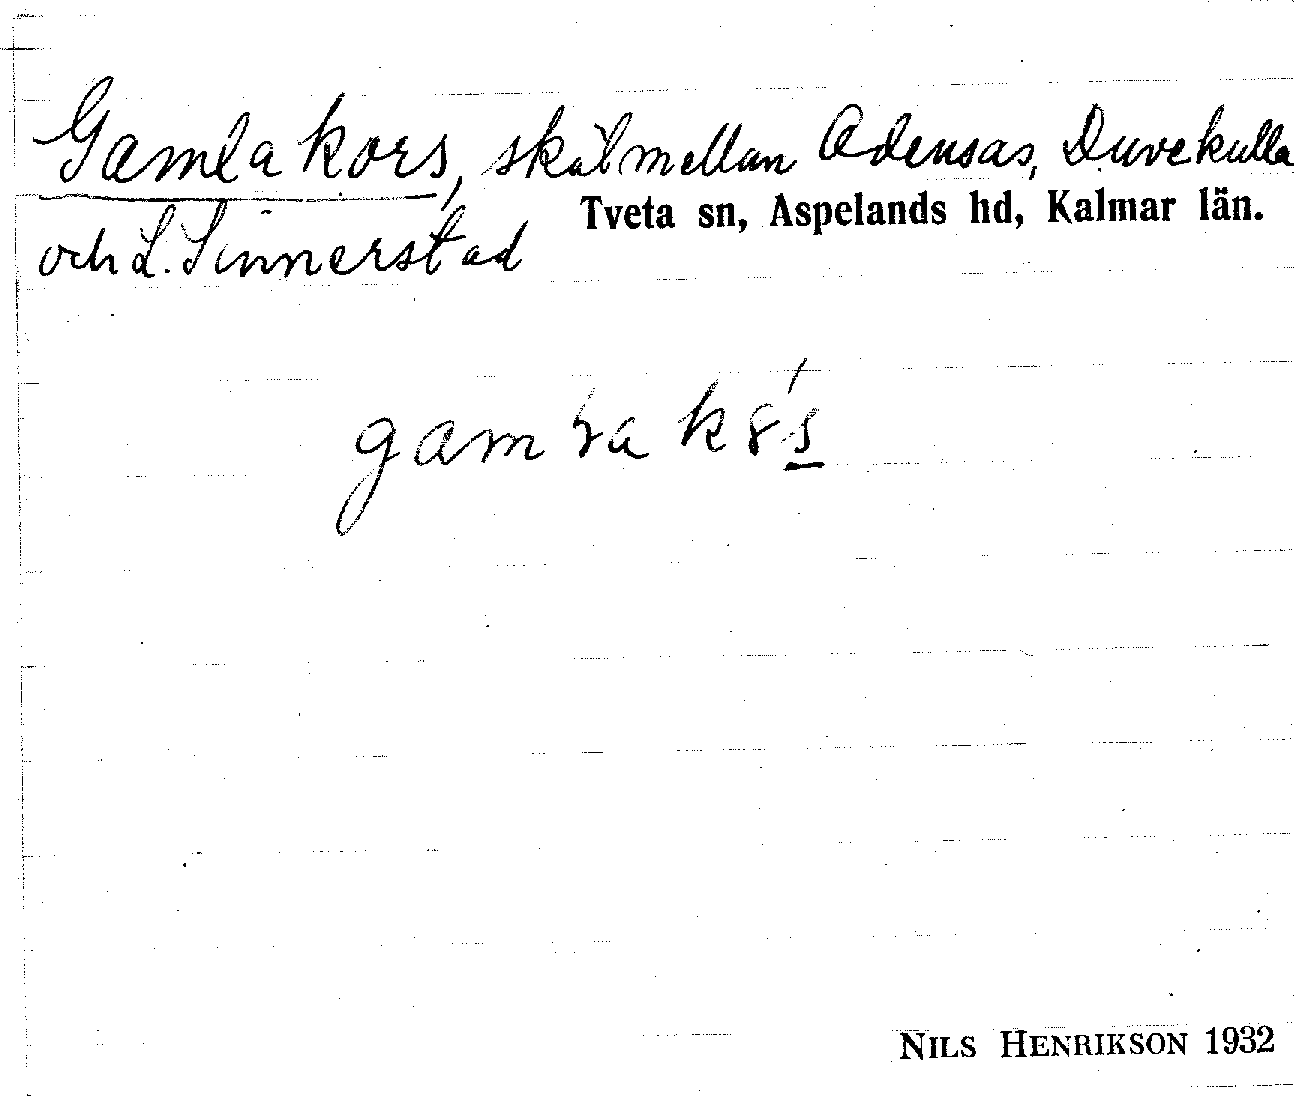 Gamla kors, skäl mellan Adensås, Duvekulla
Tveta sn, Aspelands hd, Kalmar län.
och L. Sinnerstad
NILS HENRIKSON 1932